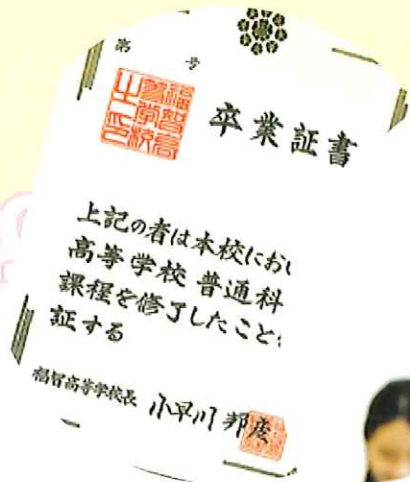 第 号
福智高等学校之印
卒業証書
上記の者は本校におい
高等学校 普通科
課程を修了したこと
証する
福智高等学校長 小早川 邦彦